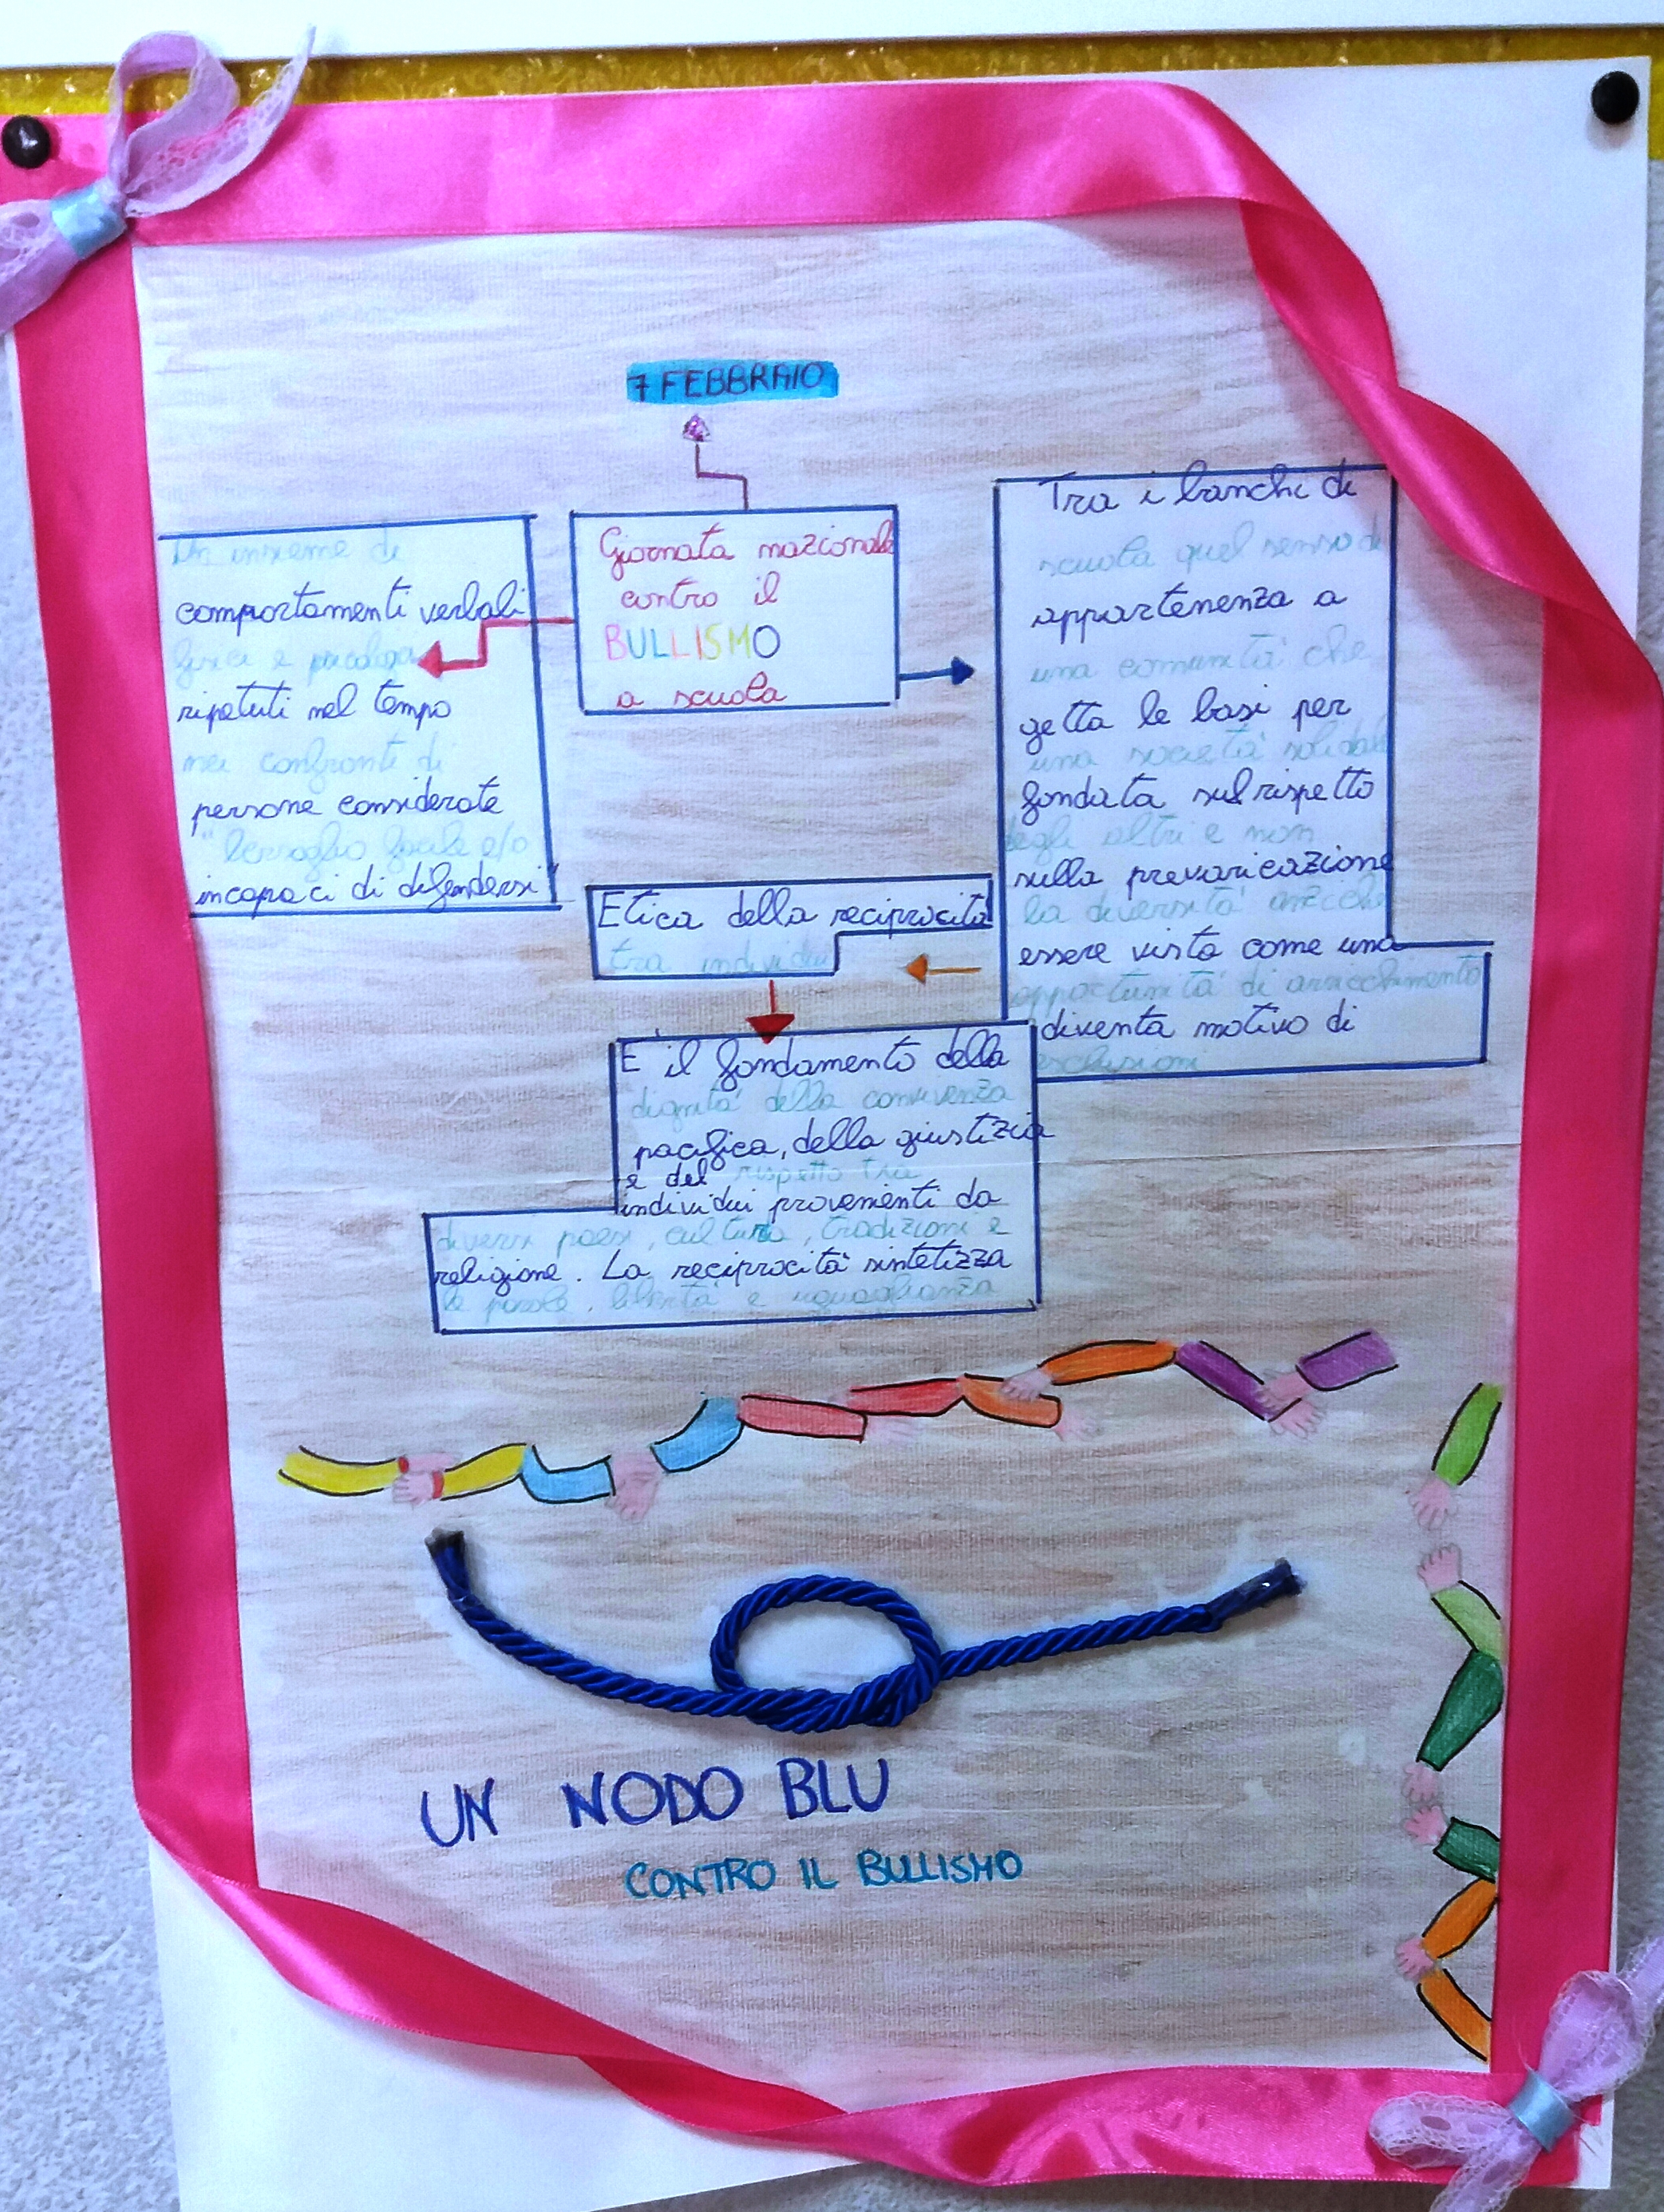 7 FEBBRAIO
Giornata nazionale
contro il
BULLISMO
a scuola
Un insieme di
comportamenti verbali
fisici e psicologi
ripetuti nel tempo
nei confronti di
persone considerate
"bersaglio facile e/o
incapaci di difendersi"
Tra i banchi di
scuola quel senso di
appartenenza a
una comunità che
getta le basi per
una società solidale
fondata sul rispetto
degli altri e non
sulla prevaricazione
la diversità anziche
essere vista come una
opportunità di arricchimento
diventa motivo di
esclusioni
Etica della reciprocità
tra individui
E il fondamento della
dignità della convivenza
pacifica, della giustizia
e del rispetto tra
individui provenienti da
diversi paesi, cultura, tradizioni e
religione. La reciprocità sintetizza
le parole, libertà e uguaglianza
UN NODO BLU
CONTRO IL BULLISMO